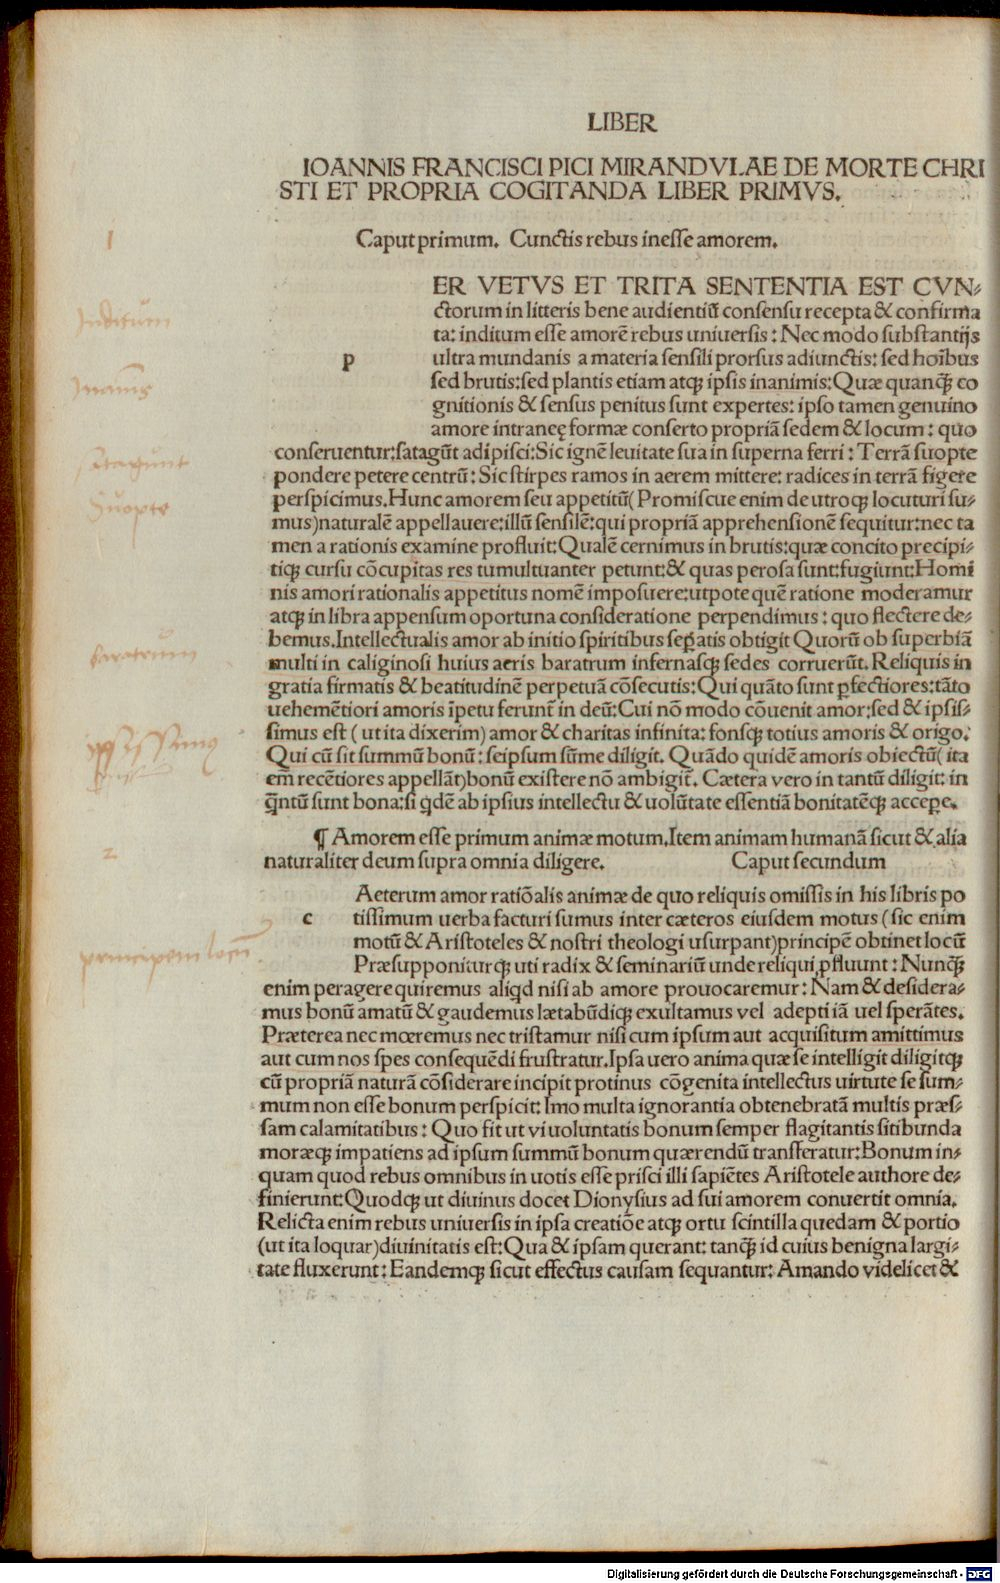 LIBER
IOANNIS FRANCISCI PICI MIRANDVLAE DE MORTE CHRI
STI ET PROPRIA COGITANDA LIBER PRIMVS.
1
Caput primum. Cunctis rebus inesse amorem.
ER VETVS ET TRITA SENTENTIA EST CVN-
ctorum in litteris bene audientiū consensu recepta & confirma
Inditum
ta: inditum esse amorē rebus uniuersis: Nec modo substantijs
p ultra mundanis a materia sensili prorsus adiunctis: sed hoībus
Inanimis
sed brutis: sed plantis etiam atq; ipsis inanimis: Quæ quanq̃ co
gnitionis & sensus penitus sunt expertes: ipso tamen genuino
amore intraneę formæ conserto propriā sedem & locum: quo
conseruentur: satagūt adipisci: Sic ignē leuitate sua in superna ferri: Terrā suopte
satagunt
pondere petere centrū: Sic stirpes ramos in aerem mittere: radices in terrā figere
Suopte
perspicimus. Hunc amorem seu appetitū (Promiscue enim de utroq; locuturi su-
mus) naturalē appellauere: illū sensilē: qui propriā apprehensionē sequitur: nec ta
men a rationis examine profluit: Qualē cernimus in brutis: quæ concito precipi-
tiq; cursu cōcupitas res tumultuanter petunt: & quas perosa sunt: fugiunt: Homi
nis amori rationalis appetitus nomē imposuere: utpote quē ratione moderamur
atq; in libra appensum oportuna consideratione perpendimus: quo flectere de-
bemus. Intellectualis amor ab initio spiritibus seꝑatis obtigit Quorū ob superbiā
baratrum
multi in caliginosi huius aeris baratrum infernasq; sedes corruerūt. Reliquis in
gratia firmatis & beatitudinē perpetuā cōsecutis: Qui quāto sunt ꝑfectiores: tāto
uehemētiori amoris īpetu ferunt̄ in deū: Cui nō modo cōuenit amor: sed & ipsis-
simus est (ut ita dixerim) amor & charitas infinita: fonsq; totius amoris & origo.
ipsissimus
Qui cū sit summū bonū: seipsum sūme diligit. Quādo quidē amoris obiectū (ita
em̄ recētiores appellāt) bonū existere nō ambigit̄. Cætera vero in tantū diligit: in
q̄ntū sunt bona: si qdē ab ipsius intellectu & uolūtate essentiā bonitatēq; acceꝑe.
¶ Amorem esse primum animæ motum. Item animam humanā sicut & alia
2
naturaliter deum supra omnia diligere. Caput secundum
Aeterum amor ratiōalis animæ de quo reliquis omissis in his libris po
c tissimum uerba facturi sumus inter cæteros eiusdem motus (sic enim
motū & Aristoteles & nostri theologi usurpant) principē obtinet locū
principem locū
Præsupponiturq; uti radix & seminariū unde reliqui ꝓfluunt: Nunq̃
enim peragere quiremus aliqd nisi ab amore prouocaremur: Nam & desidera-
mus bonū amatū & gaudemus lætabūdiq; exultamus vel adepti iā uel sperātes.
Præterea nec mœremus nec tristamur nisi cum ipsum aut acquisitum amittimus
aut cum nos spes consequēdi frustratur. Ipsa uero anima quæ se intelligit diligitq;
cū propriā naturā cōsiderare incipit protinus cōgenita intellectus uirtute se sum-
mum non esse bonum perspicit: Imo multa ignorantia obtenebratā multis præs-
sam calamitatibus: Quo fit ut vi uoluntatis bonum semper flagitantis sitibunda
moræq; impatiens ad ipsum summū bonum quærendū transferatur: Bonum in-
quam quod rebus omnibus in uotis esse prisci illi sapiētes Aristotele authore de-
finierunt: Quodq; ut diuinus docet Dionysius ad sui amorem conuertit omnia.
Relicta enim rebus uniuersis in ipsa creatiōe atq; ortu scintilla quedam & portio
(ut ita loquar) diuinitatis est: Qua & ipsam querant: tanq̃ id cuius benigna largi-
tate fluxerunt: Eandemq; sicut effectus causam sequantur: Amando videlicet &
Digitalisierung gefördert durch die Deutsche Forschungsgemeinschaft - DFG